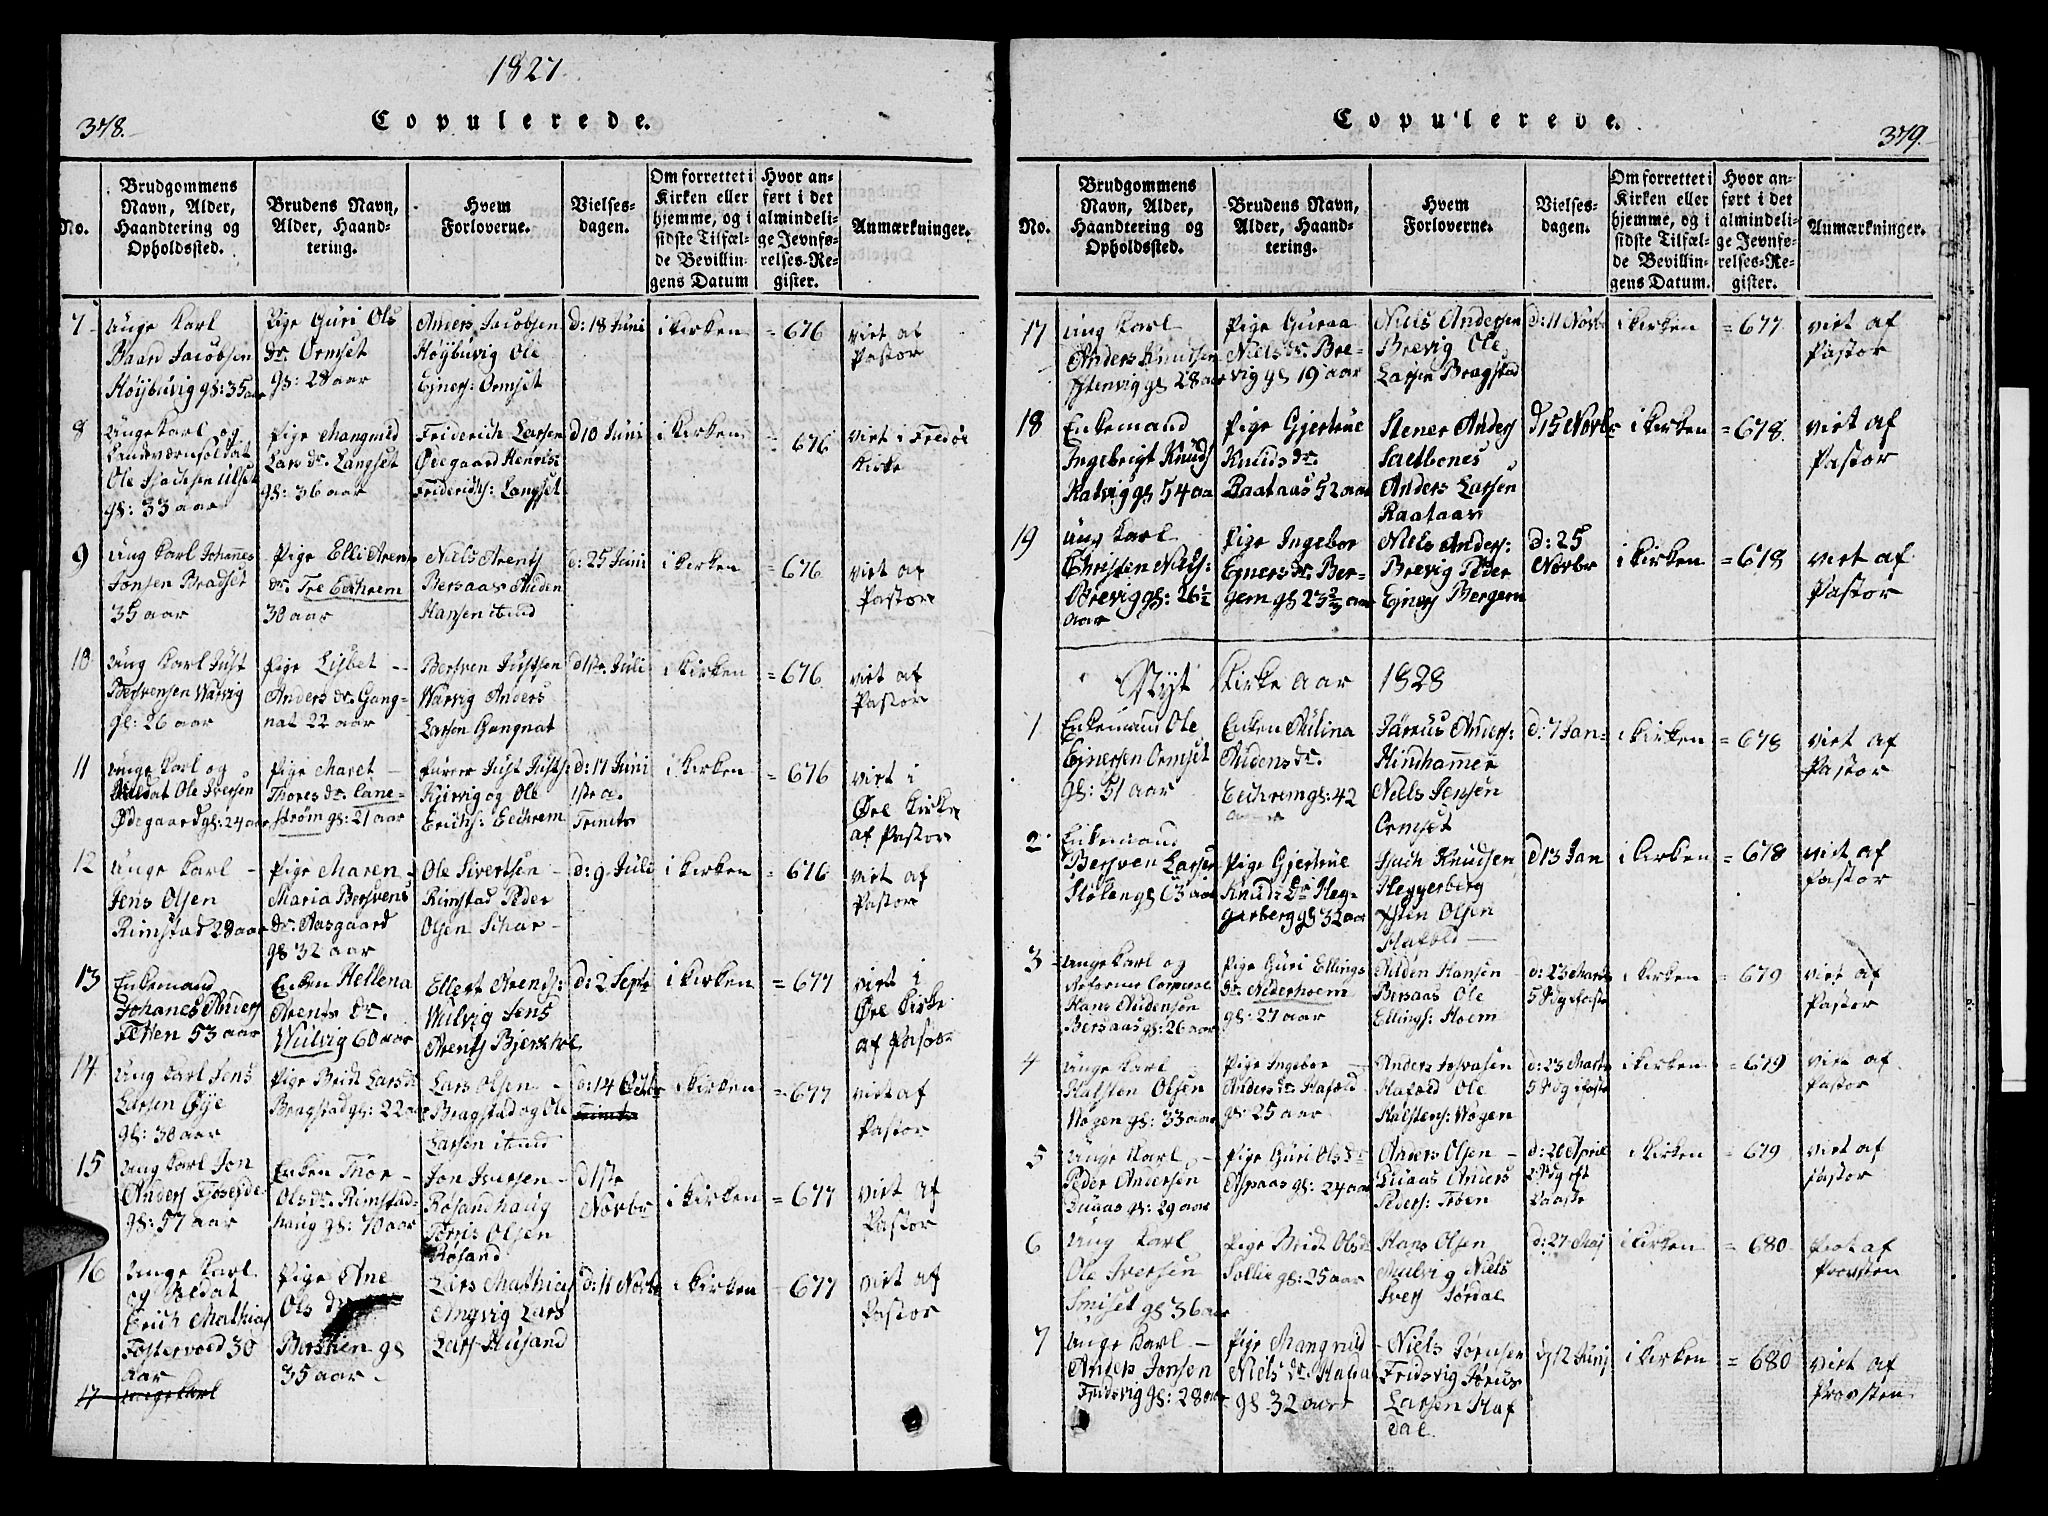 1827
378.
Copulerede.
No.
Brudgommens Navn, Alder, Haandtering og Opholdssted.
Brudens Navn, Alder, Haandtering.
Hvem Forloverne.
Vielsesdagen.
Om forrettet i Kirken eller hjemme, og i sidste Tilfælde Bevillingens Datum
Hvor anført i det almindelige Jevnførelses-Register.
Anmærkninger.
7 Unge Karl Baard Jacobsen Høybuvig gs: 35 aar
Pige Guri Ols dr. Ormset gs: 28 aar
Anders Jacobsen Høybuvig Ole Ejners: Ormset
d: 18 Juni
i Kirken
= 676
viet af Pastor
8 Unge Karl og Landværnsoldat Ole Ulset gs: 33 aar
Pige Mangnild Lars dr. Langset gs: 36 aar
Friderich Larsen Ødegaard Henrich Fridrichs: Langset
d 10 Juni
i Kirken
= 676
viet i Fredøe Kirke
9 Ung Karl Johannes Jonsen Bradset 35 aar
Pige Elli Arents dr. Tre Eechrem 30 aar
Niels Arents Bersaas Auden Hansen ibend
d: 25 Juni
i Kirken
= 676
viet af Pastor
10 Ung Karl Just Bersvensen Warvig gs: 26 aar
Pige Lisbet Anders dr. Gangnat 22 aar
Bersven Justsen Warvig Anders Larsen Gangnat
d 1ste Juli
i Kirken
= 676
viet af Pastor
11 Unge Karl og Soldat Ole Iversen Ødegaard gs: 24 aar
Pige Maret Thores dr. Lanestrøm gs: 21 aar
Just Justs: Kjørvig og Ole Erichs: Eechrem
d: 17 Juni 1ste a. Trinits
i Kirken
= 676
viet i Øre Kirke af Pastor
12 Unge Karl Jens Olsen Rimstad 28 aar
Pige Maren Maria Bersvens dr. Aasgaard gs 32 aar
Ole Sivertsen Rimstad Peder Olsen Schar
d: 9 Juli
i Kirken
= 676
viet af Pastor
13 Enkemand Johanes Anders Fetten 53 aar
Enken Hellena Arents dr. Wulvig 60 aar
Ellert Arends: Wulvig Jens Arents Bjerkhol
d: 2 Septr
i Kirken
= 677
viet i Øre Kirke af Pastor
14 Ung Karl Jens Larsen Øye gs: 30 aar
Pige Brit Larsdr Bragstad gs: 22 aar
Lars Olsen Bragstad og Ole Larsen ibend
d: 14 Octbr
i Kirken
= 677
viet af Pastor
15 Ung Karl Jon Anders gs: 57 aar
Enken Thor Ols dr. Rimstadhaug gs: 70 aar
Jon Iversen Røsandhaug Tøris Olsen Røsand
d 1ste Novbr
i Kirken
= 677
viet af Pastor
16 Unge Karl og Soldat Erich Mathias Fostervold 30 aar
Pige Ane Ols dr Berstien gs 35 aar
Lars Mathias Engvig Lars Lars Husand
d: 11 Novbr
i Kirken
= 677
viet af Pastor
17 unge Karl
379.
Copulerede.
No.
Brudgommens Navn, Alder, Haandtering og Opholdssted.
Brudens Navn, Alder, Haandtering.
Hvem Forloverne.
Vielsesdagen.
Om forrettet i Kirken eller hjemme, og i sidste Tilfælde Bevillingens Datum.
Hvor anført i det almindelige Jevnførelses-Register.
Anmærkninger.
17 Ung Karl Anders Knutsen Stenvig gs 28 aar
Pige Guraa Niels dr. Brevig gs 19 aar
Niels Andersen Brevig Ole Larsen Bragstad
d: 11 Novbr
i Kirken
= 677
viet af Pastor
18 Enkemand Ingebrigt Knuds Kalvig gs 54 aar
Pige Gjertrue Knuds dr. Raataas 52 aar
Stener Anders Saltbones Anders Larsen Raataas
d 15 Novbr
i Kirken
= 678
viet af Pastor
19 Ung Karl Christen Niels: Brevig gs: 26½ aar
Pige Ingebor Ejners dr. Bergem gs 23⅔ aar
Niels Anders: Brevig Peder Ejners Bergem
d: 25 Novbr
i Kirken
= 678
viet af Pastor
Nyt Kirke aar 1828
1 Enkemand Ole Ejnersen Ormset gs: 51 aar
Enken Aulina Audens dr. Eechrem gs: 42 aar
Jørus Anders: Hindhammer Niels Jensen Ormset
d: 7 Jan
i Kirken
= 678
viet af Pastor
2 Enkemand Bersven Larsen Hølen gs 63 aar
Pige Gjertrue Knuds Dr Heggerberg gs 32 aar
Isach Knudsen Heggerberg Østen Olsen Hafold
d 13 Jan
i Kirken
= 678
viet af Pastor
3 Unge Karl og Corporal Hans Audensen Bersaas gs: 26 aar
Pige Guri Ellings dr. Nederhoem gs: 27 aar
Auden Hansen Bersaas Ole Ellings: Hoem
d: 23 Marts 5 Sdg i Faste
i Kirken
= 679
viet af Pastor
4 Unge Karl Halsten Olsen Wogen gs: 33 aar
Pige Ingebor Anders dr Hafold gs: 25 aar
Anders Hafold Ole Halstens: Wogen
d: 23 Marts 5 Sdg i Faste
i Kirken
= 679
viet af Pastor
5 Unge Karl Peder Andersen Duaas gs: 29 aar
Pige Guri Ols dr Espaas gs: 24 aar
Anders Olsen Duaas Anders Peders: Torben
d: 20 April 2 Sdg eft Paaske
i Kirken
= 679
viet af Pastor
6 Ung Karl Ole Iversen Smiset gs 36 aar
Pige Brit Olsdr Sollie gs: 25 aar
Hans Olsen Niels Ivers Sørdal
d: 27 Maj
i Kirken
= 680
viet af Provsten
7 Unge Karl Anders Jonsen Fridsvig gs: 28 aar
Pige Mangnild Niels dr. Hafdal gs 32 aar
Niels Jørusen Fridsvig Jørus Larsen Hafdal.
d 12 Junj
i Kirken
= 680
viet af Provsten